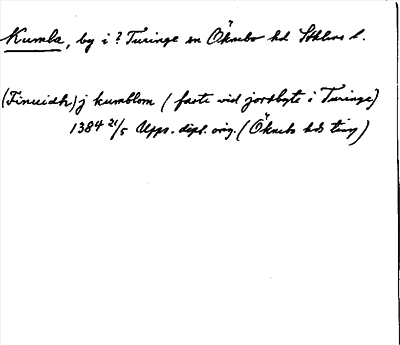 Kumla, by i ? Turinge sn Öknebo hd Sthlms l.
(Finuidh) j kumblom (faste vid jordbyte i Turinge)
1384 21/5 Upps. dipl. orig. (Öknebo hds ting)